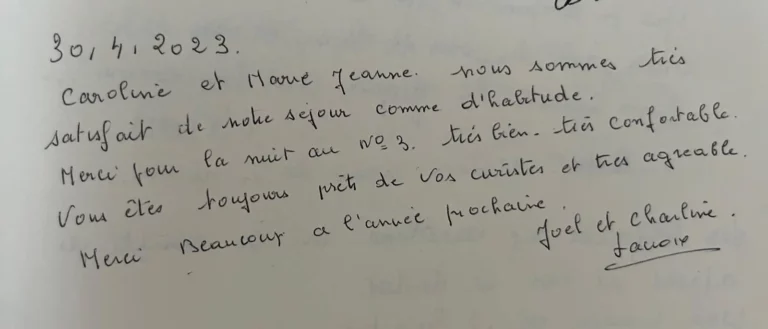 30,4,2023.
Caroline et Marie Jeanne. nous sommes très
satisfait de notre séjour comme d'habitude.
Merci pour la nuit au N° 3. très bien - très confortable.
Vous êtes toujours près de vos curistes et très agréable.
Merci Beaucoup a l'année prochaine.
Joel et Charline.